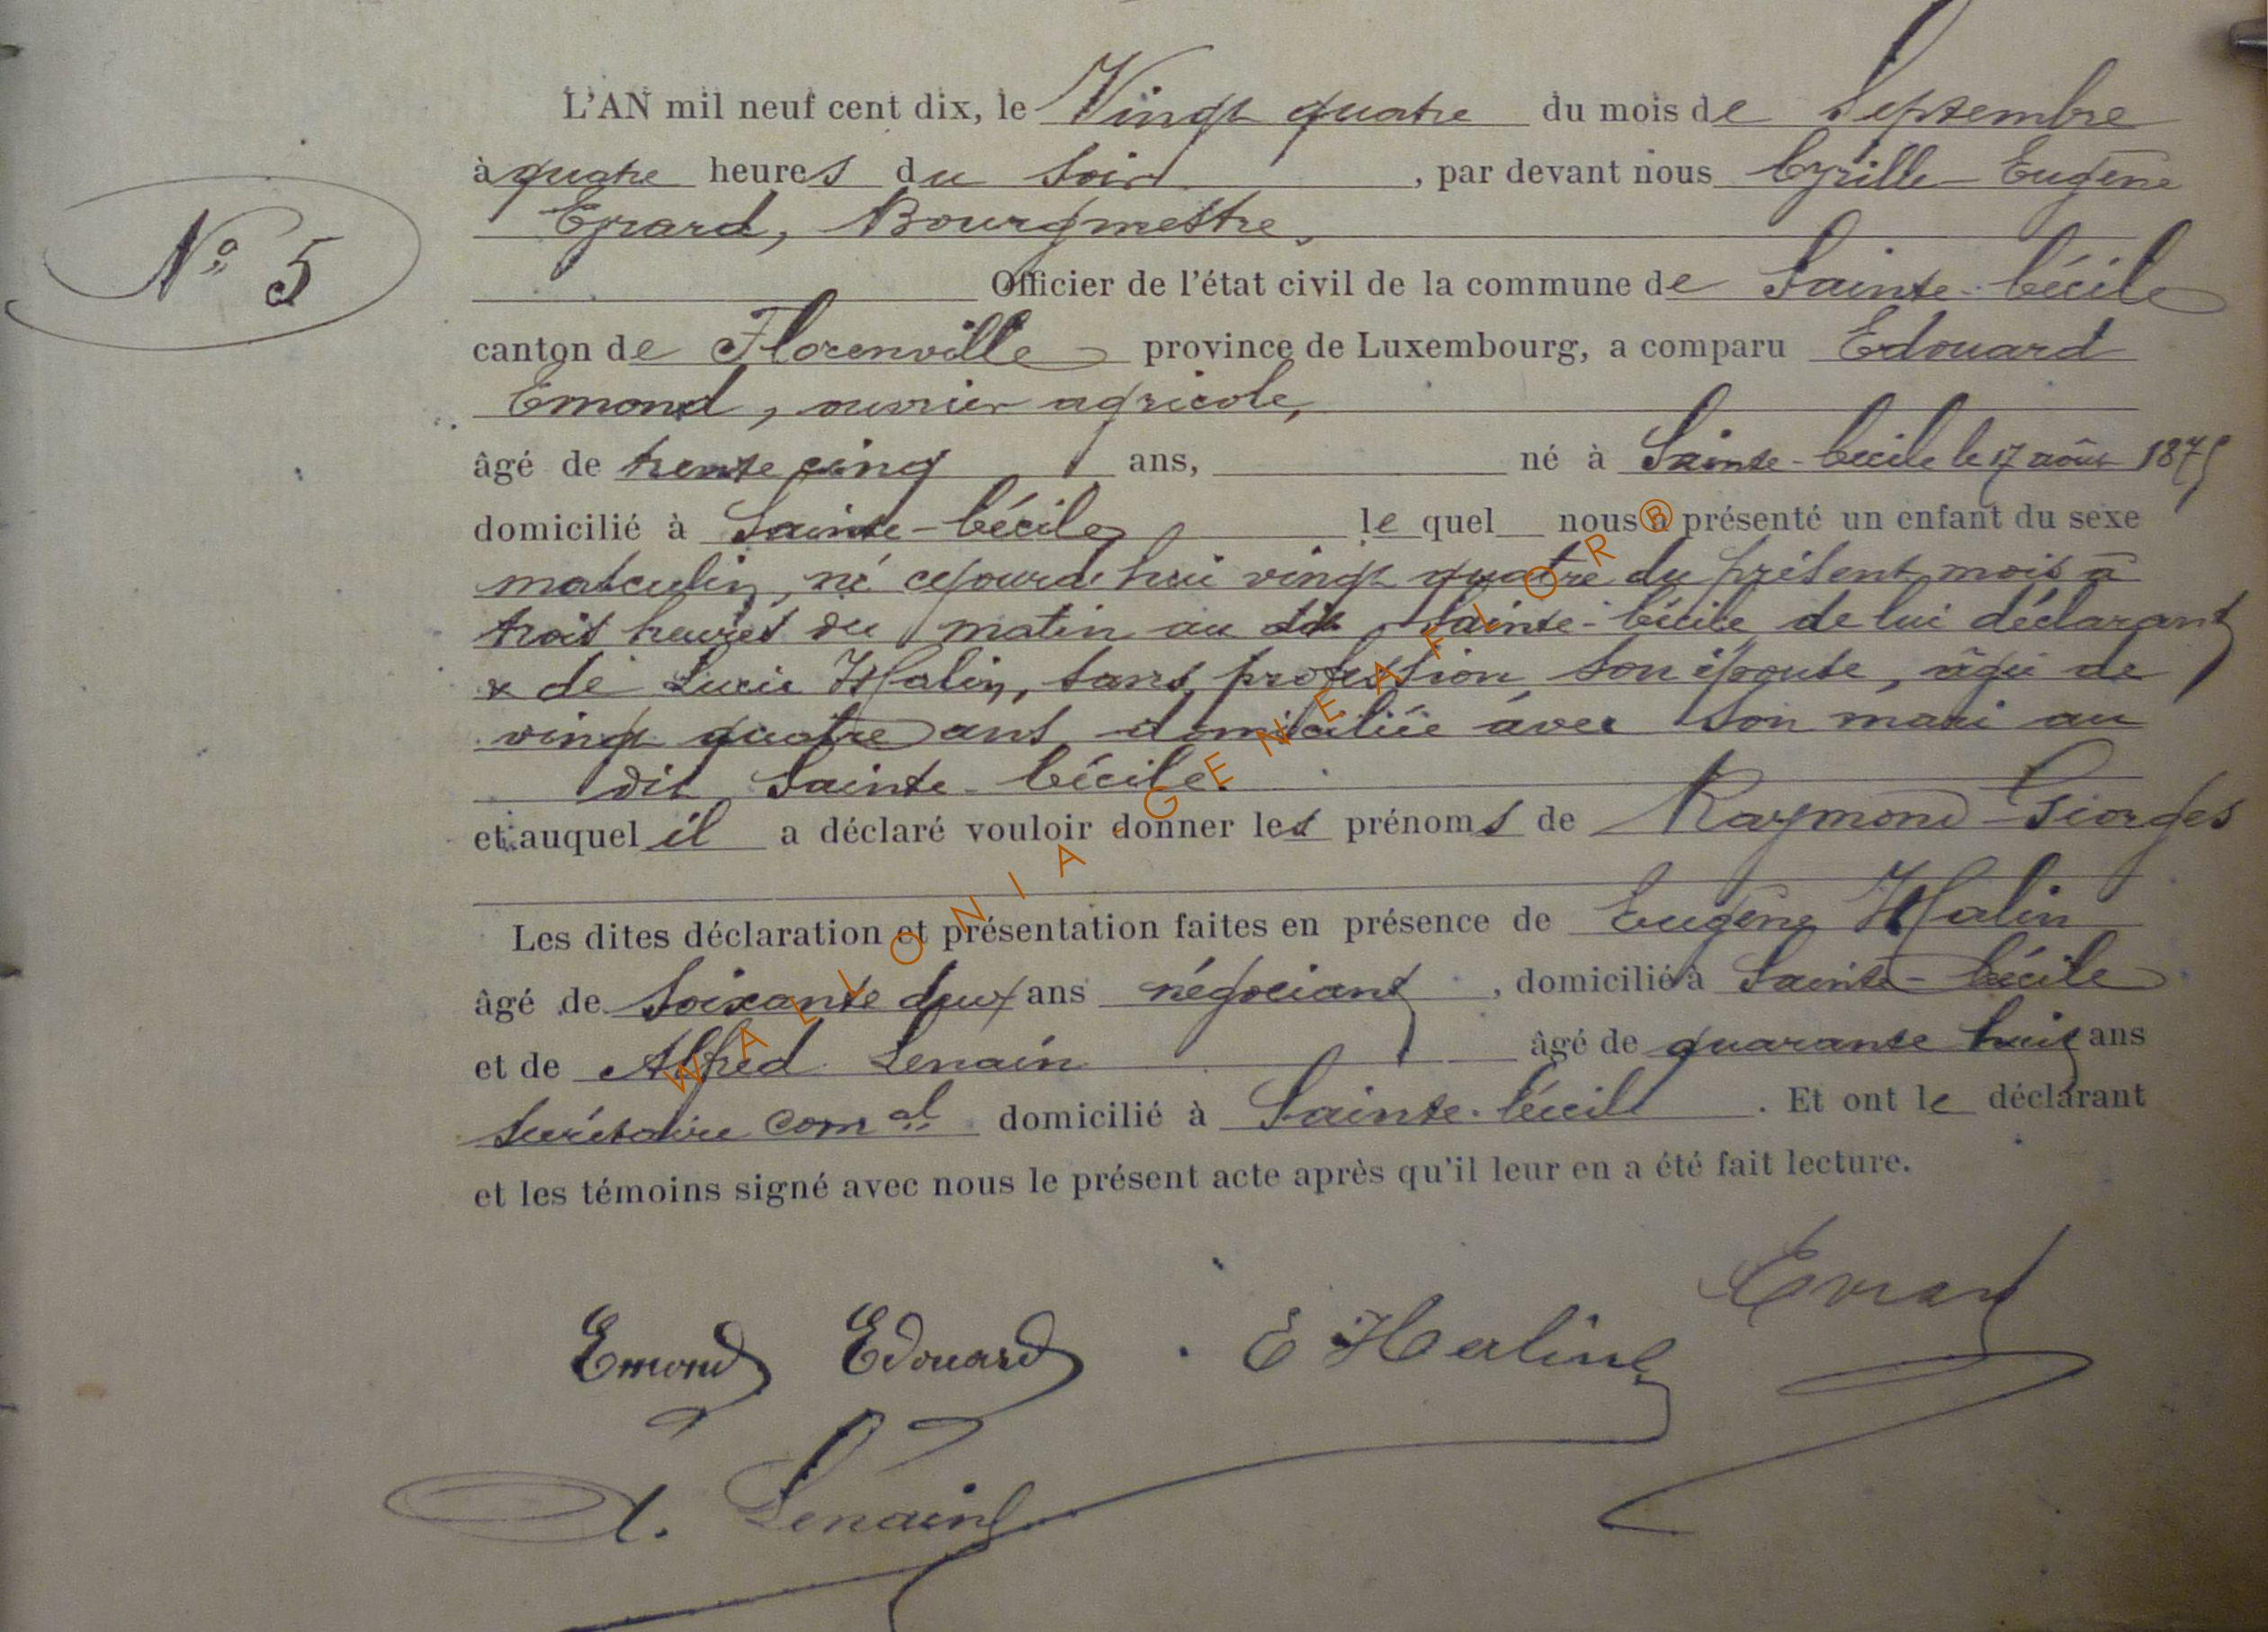 L'AN mil neuf cent dix, le Vingt quatre du mois de Septembre
à quatre heures du soir, par devant nous Cyrille-Eugène
Evrard, Bourgmestre,
Nº 5
Officier de l'état civil de la commune de Sainte-Cécile
canton de Florenville province de Luxembourg, a comparu Edouard
Emond, ouvrier agricole,
âgé de trente cinq ans, né à Sainte-Cécile le 17 août 1875
domicilié à Sainte-Cécile lequel nous a présenté un enfant du sexe
masculin, né cejourd'hui vingt quatre du présent mois à
trois heures du matin au dit Sainte-Cécile de lui déclarant
& de Lucie Halin, sans profession, son épouse, âgée de
vingt quatre ans domiciliée avec son mari au
dit Sainte-Cécile.
et auquel il a déclaré vouloir donner les prénoms de Raymond Georges
Les dites déclaration et présentation faites en présence de Eugène Halin
âgé de soixante deux ans négociant, domicilié à Sainte-Cécile
et de Alfred Lenain âgé de quarante huit ans
secrétaire comal domicilié à Sainte-Cécile. Et ont le déclarant
et les témoins signé avec nous le présent acte après qu'il leur en a été fait lecture.
Evrard
Emond Edouard E Halin
A. Lenain
WALLONIA-GENEAFLOR®